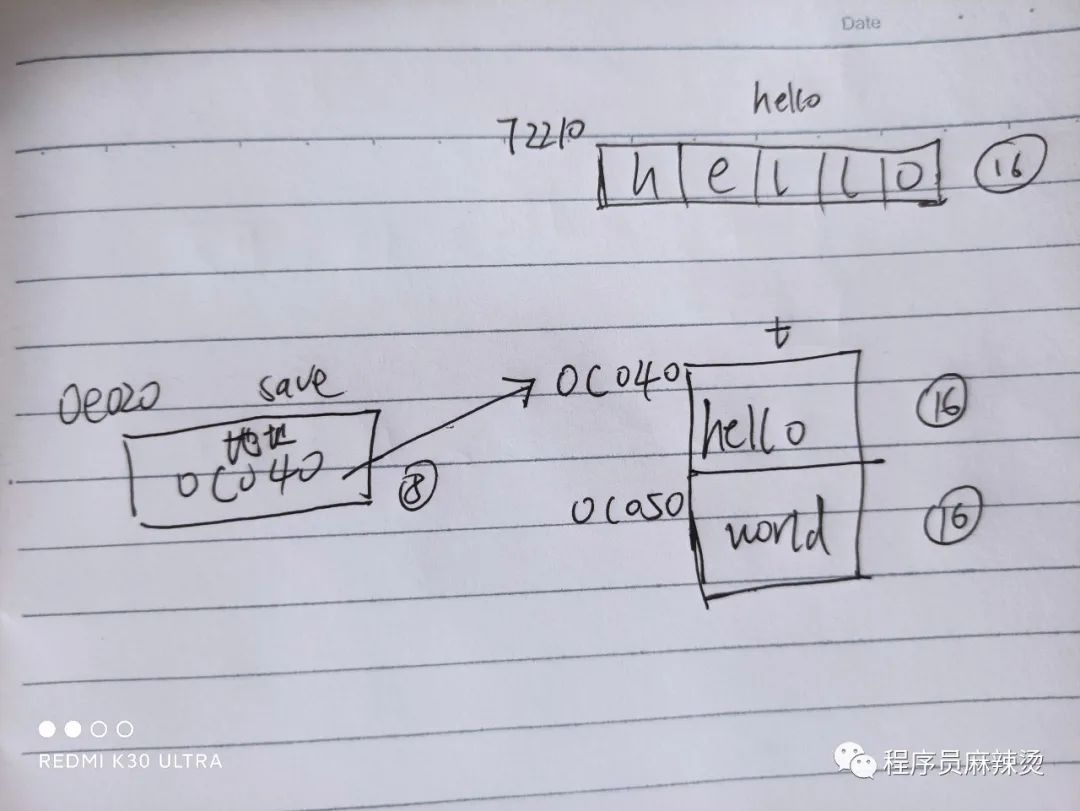 Date
hello
72210
h e l l o 16
t
0e020 save 0C040
hello 16
地址
0C040 8
0C050
world 16
REDMI K30 ULTRA
程序员麻辣烫